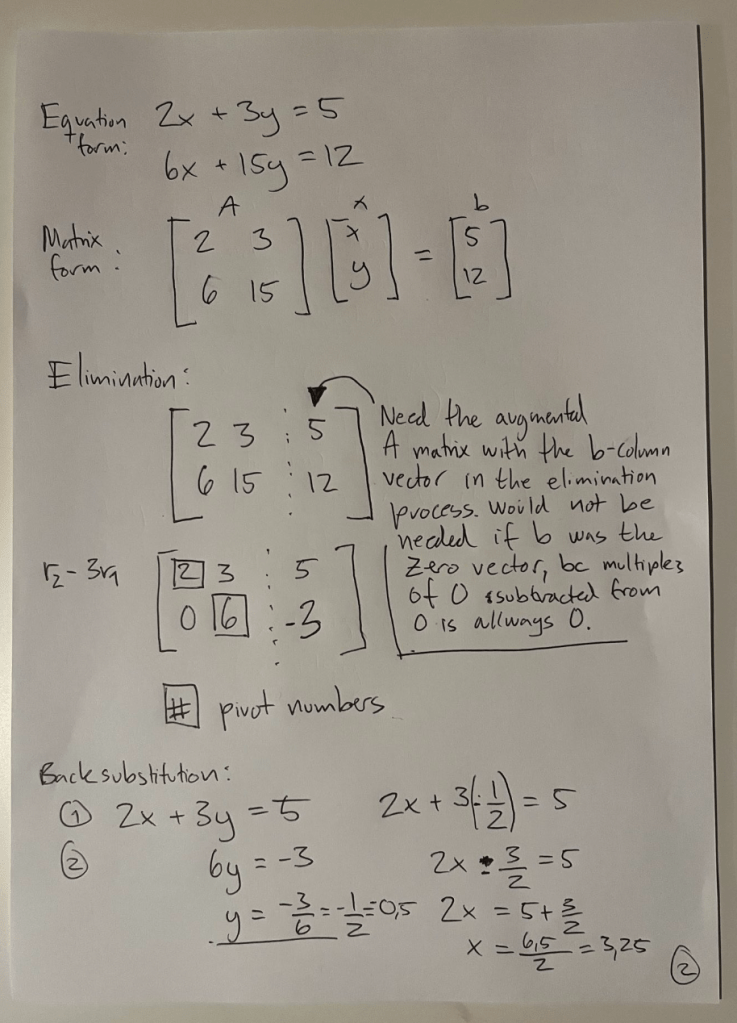 Equation 2x + 3y = 5
form: 6x + 15y = 12
A x b
Matrix form: [2 3] [x] = [5]
[6 15] [y] [12]
Elimination:
[2 3 ⋮ 5]
[6 15 ⋮ 12]
Need the augmental
A matrix with the b-column
vector in the elimination
process. Would not be
needed if b was the
zero vector, bc multiples
of 0 subtracted from
0 is allways 0.
r2 - 3r1 [2 3 ⋮ 5]
[0 6 ⋮ -3]
# pivot numbers
Backsubstitution:
① 2x + 3y = 5
② 6y = -3
y = -3/6 = -1/2 = 0,5
2x + 3(-1/2) = 5
2x - 3/2 = 5
2x = 5 + 3/2
x = 6,5/2 = 3,25
②